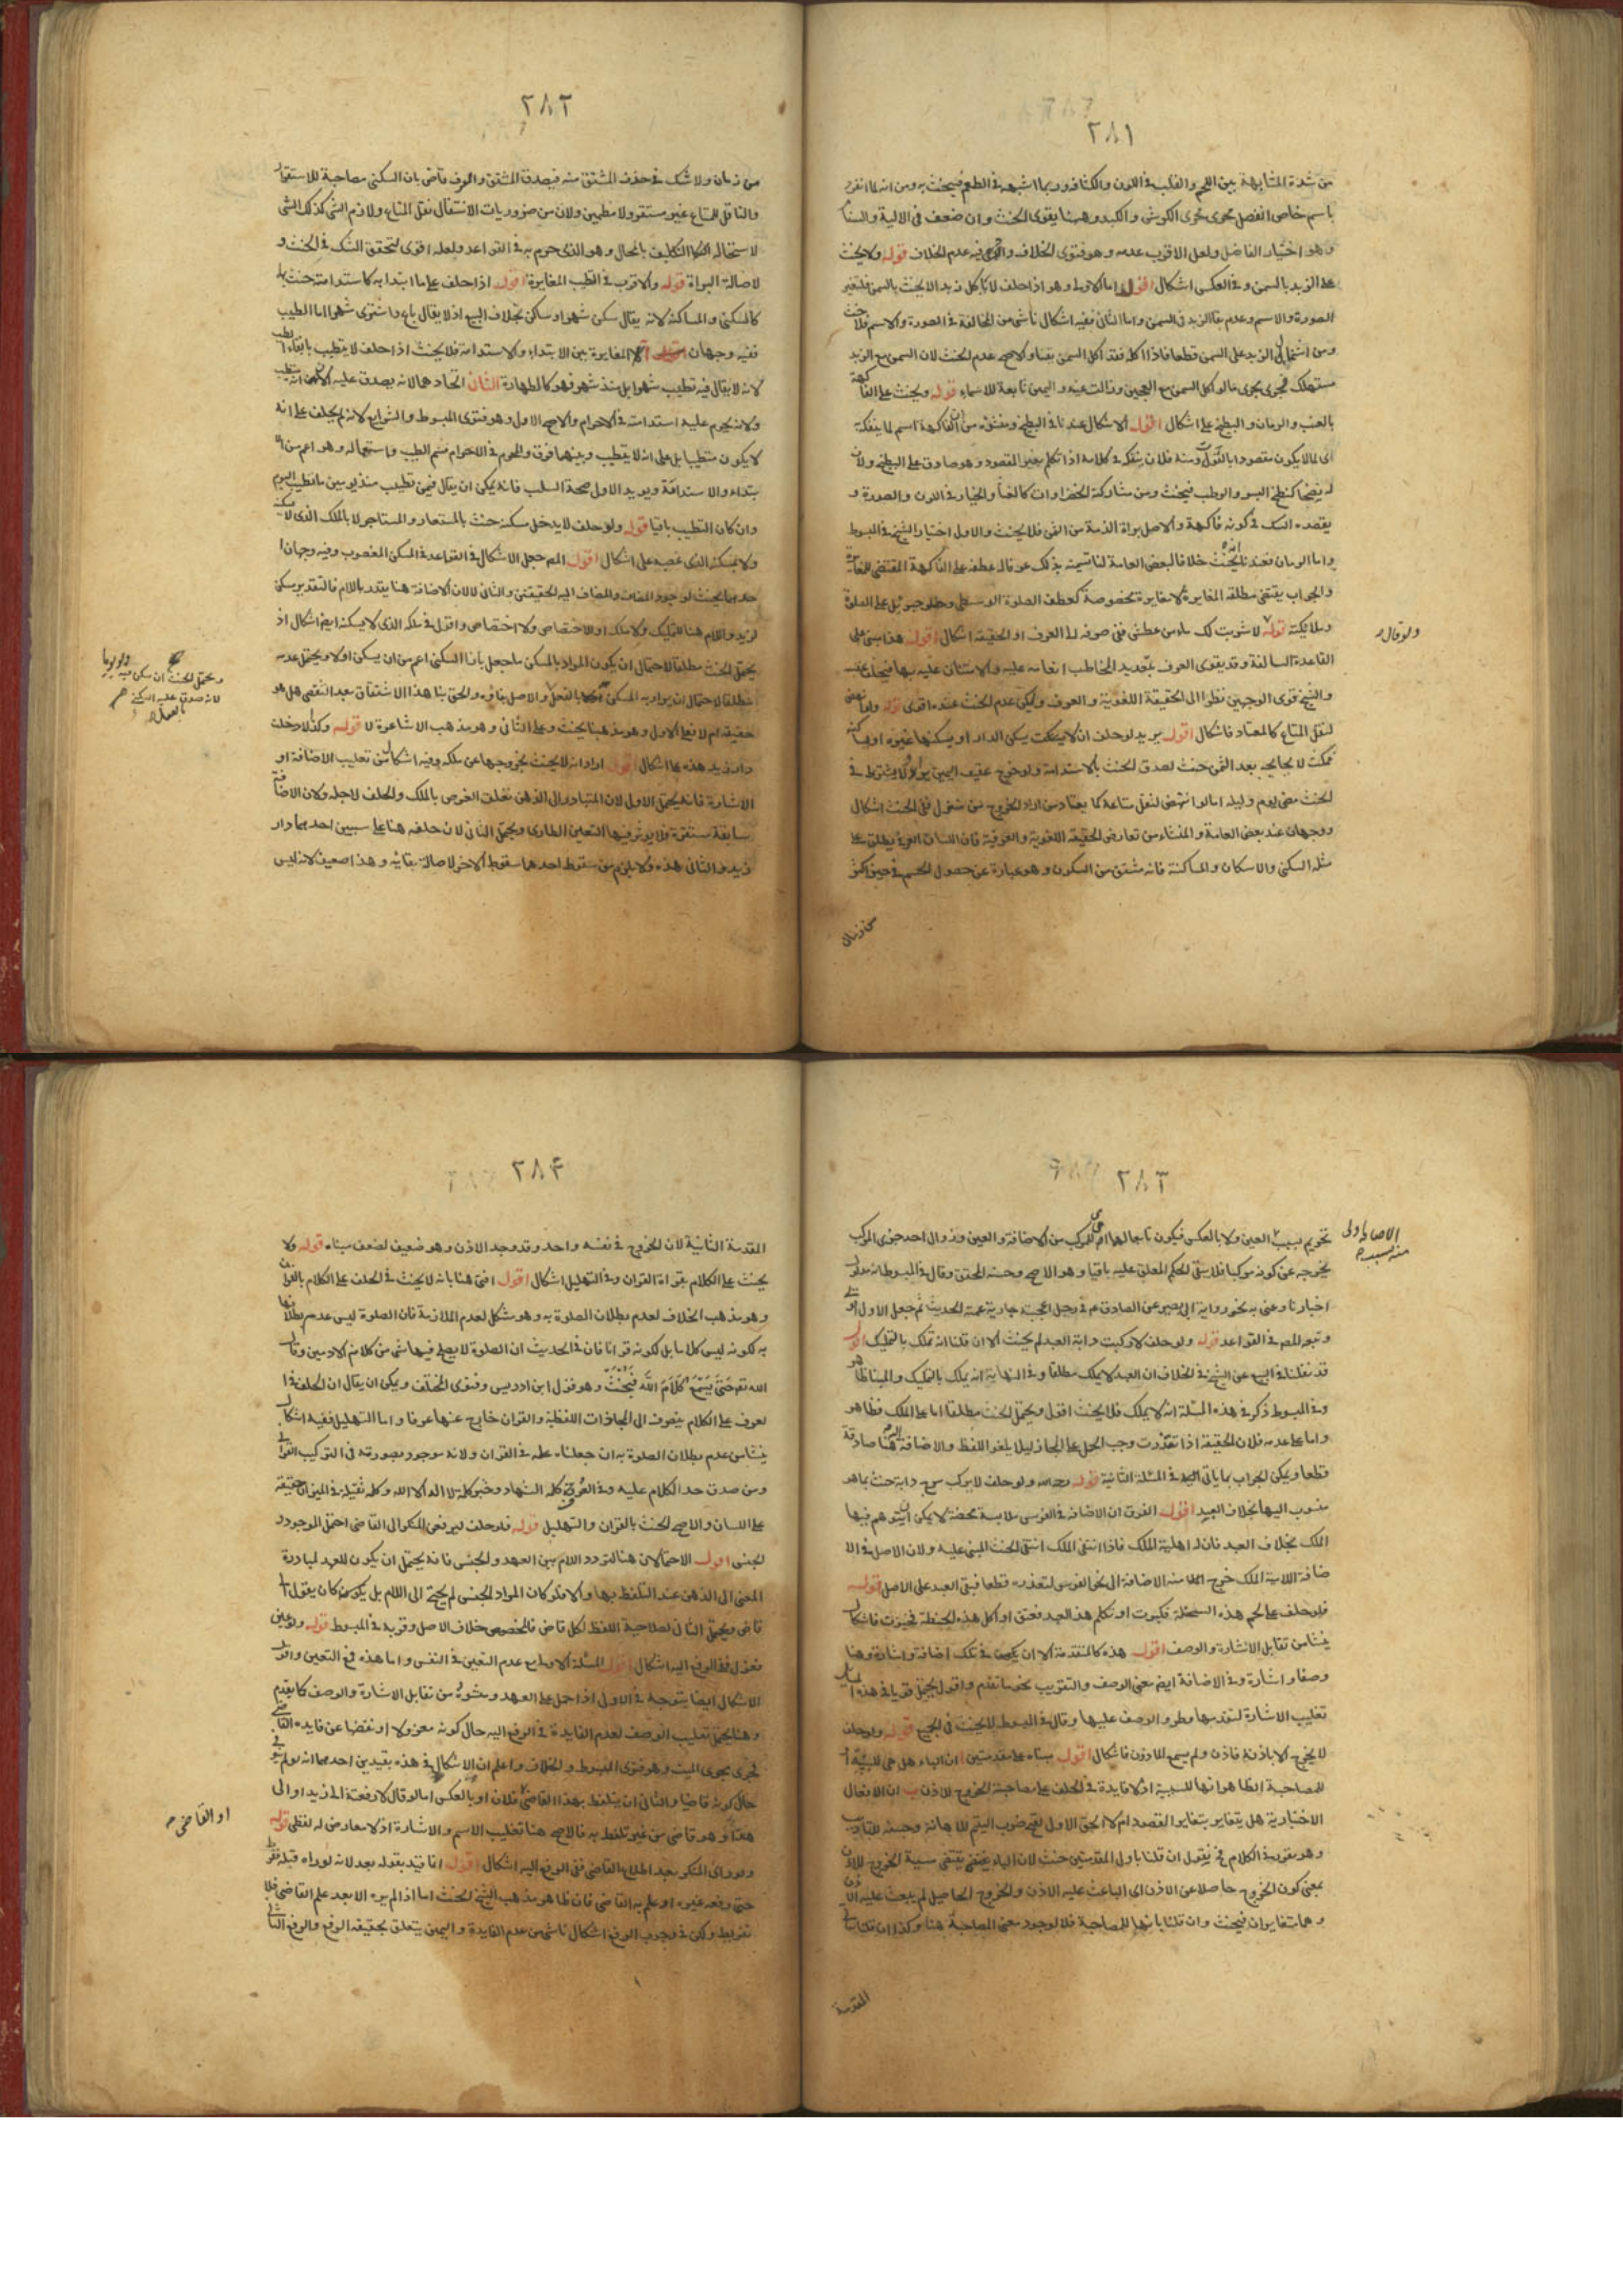 ٢٨١
من شدة المشابهة بين اللحم والقلب في اللون والكثافة وربما اشبهه في الطعم فيحنث به ومن انه لما انفرد
باسم خاص انفصل مجرى الكرش والكبد وهنا يقوى الحنث وان ضعف في الالية والسنام
وهو اختيار الفاضل ولعل الاقرب عدمه وهو فتوى الخلاف فيه عدم الخلاف قوله ولا يحنث
على الزبد بالسمن وفي العكس اشكال اقول اما الاول وهو اذا حلف لا ياكل زبدا لا يحنث بالسمن فلتغير
الصورة والاسم وعدم بقاء الزبد في السمن واما الثاني ففيه اشكال ناش من المخالفة في الصورة والاسم فلا حنث
ومن اشتمال الزبد على السمن قطعا فاذا اكله فقد اكل السمن والاصح عدم الحنث لان السمن مع الزبد
مستهلك فجرى مجرى ما لو اكل السمن مع العجين وزالت عينه واليمين تابعة للاسماء قوله ويحنث على الفاكهة
بالعنب والرمان والبطيخ على اشكال اقول الاشكال عندنا في البطيخ ومنشؤه من ان الفاكهة اسم لما يتفكه
اى لما لا يكون مقصودا بالقوت ومنه فلان يتفكه في كلامه اذا تكلم بغير المقصود وهو صادق على البطيخ ولان
له نضجا كنضج البسر والرطب فيحنث ومن مشاركته الخضراوات كالقثاء والخيار في اللون والصورة و
يقصده الشك في كونه فاكهة والاصل براءة الذمة من الشئ فلا يحنث والاول اختيار الشيخ في المبسوط
واما الرمان فعندنا انه يحنث خلافا لبعض العامة لنا تسميته بذلك عرفا له عطفه على الفاكهة المقتضى للمغايرة
والجواب يقتضى مطلقه المغايرة لا مغايرة مخصوصة كعطف الصلوة الوسطى وجبرئيل على الصلوة
وملائكته قوله لا شربت لك ماء من عطش ففى صرفه الى العرف او الحقيقة اشكال اقول هذا مبنى على
القاعدة السالفة وقد يقوى العرف بتعديد المخاطب انعامه عليه والامتنان عليه بها
والشيخ قوى الوجهين نظرا الى الحقيقة اللغوية والعرف ولكن عدم الحنث عنده اقوى قوله ولو
لنقل المتاع كالمعتاد فاشكال اقول يريد لو حلف ان لا يسكن الدار او يسكنها غيره او
مكث لا بجابحه بعد اليمين حنث لصدق الحنث بالاستدامة ولو خرج عقيب اليمين ولا يشترط في
الحنث مضى يوم وليلة اما لو انتهض لنقل متاعه كما يعتاد من اراد الخروج من منزل ففى الحنث اشكال
ووجهان عند بعض العامة والمنشاء من تعارض الحقيقة اللغوية والعرفية فان اللسان العربى يطلق على
مثله السكنى والاسكان والمساكنة فانه مشتق من السكون وهو عبارة عن حصول الجسم في حيز اكثر
من زمان
ولو قال
٢٨٢
من زمان ولا شك في حذف المشتق منه فيصدق المشتق والعرف قاض بان السكنى مصاحبة للاستقرار
والناقل للمتاع غير مستقر ولا مطمئن ولان من ضروريات الانتقال نقل المتاع ولازم الشئ كذلك الشئ
لاستحالة التكليف بالمحال وهو الذى جزم به في القواعد ولعله اقوى لتحقق الشك في الحنث و
لاصالة البراة قوله والاقرب في الطيب المغايرة اقول اذا حلف على ما ابتدا به كاستدامته حنث بها
كالسكنى والمساكنة لانه يقال سكن شهرا وساكن بخلاف البيع اذ لا يقال باع واشترى شهرا اما الطيب
ففيه وجهان المغايرة بين الابتداء والاستدامة فلا يحنث اذا حلف لا يتطيب بابقاء الطيب
لانه لا يقال فيه تطيب شهرا بل منذ شهر فهو كالطهارة الثاني اتحادهما لانه يصدق عليه الان انه متطيب
ولانه يحرم عليه استدامته في الاحرام والاصح الاول وهو فتوى المبسوط والشرايع لانه لم يحلف على انه
لا يكون متطيبا بل على انه لا يتطيب وبينهما فرق والمحرم في الاحرام شم الطيب واستعماله وهو اعم من الا
بتداء والاستدامة ويويد الاول صحة السلب فانه يمكن ان يقال فيمن تطيب منذ يومين ما تطيب اليوم
وان كان التطيب باقيا قوله ولو حلف لا يدخل مسكنه حنث بالمستعار والمستاجر لا بالملك الذى لا يسكنه
ولا بمسكنه الذى غصبه على اشكال اقول المصنف جعل الاشكال في القواعد في المسكن المغصوب وفيه وجهان ا
حدهما يحنث لوجود المضاف والمضاف اليه الحقيقتين والثاني لا لان الاضافة هنا بتقدير اللام فالتقدير مسكن
لزيد واللام هنا للتمليك ولا ملك او للاختصاص ولا اختصاص واقول في ملكه الذى لا يسكنه ايضا اشكال اذ
يحتمل الحنث مطلقا لاحتمال ان يكون المراد بالمسكن ما جعل بازاء السكنى اعم من ان يسكن اولا ويحتمل عدمه
مطلقا لاحتمال ان يراد به المسكن بالفعل والاصل بقاؤه والحق بناء هذا الاشتقاق بعد التقضى هل هو
حقيقة ام لا فعلى الاول وهو مذهبنا يحنث وعلى الثاني وهو مذهب الاشاعرة لا قوله وكذا لا دخلت
دار زيد هذه على اشكال اقول ارادانه لا يحنث بخروجها عن ملكه وفيه اشكال من تغليب الاضافة او
الاشارة فانه يحتمل الاول لان المتبادر الى الذهن تعلق الغرض بالملك والحلف لاجله ولان الاضافة
سابقة مستقرة ولا يوثر فيها التعيين الطارى ويحتمل الثاني لان حلفه هنا على سببين احدهما دار
زيد والثاني هذه ولا يلزم من سقوط احدهما سقوط الاخر لاصالة بقائه وهذا ضعيف لانه ليس
ويحتمل الحنث ان سكن فيه ولو يوما
لانه صدق عليه السكنى
بالعمل
٢٨٣
تحريم بسبب العين ولا بالعكس فيكون تابعا لها للمركب من الاضافة والعين وزوال احد جزئى المركب
يخرجه عن كونه مركبا فلا يبقى الحكم المعلق عليه باقيا وهو الاصح وحسنه المحقق وقال في المبسوط انه مدلول
اخبارنا وعنى به نحو رواية ابى بصير عن الصادق ع في رجل اعجبته جارية عمته الحديث ثم جعل الاول اقوى
وتبعه المصنف في القواعد قوله ولو حلف لا ركبت دابة العبد لم يحنث الا ان قلنا انه تملك بالتمليك اقول
قد نقلنا في البيع عن الشيخ في الخلاف ان العبد لا يملك مطلقا وفي النهاية انه يملك بالتمليك
وفي المبسوط ذكر في هذه المسئلة انه لا يملك فلا يحنث اقول ويحتمل الحنث مطلقا اما على الملك فظاهر
واما على عدمه فلان الحقيقة اذا تعذرت وجب الحمل على المجاز ليلا يلغو اللفظ والاضافة اليه هنا صادقة
قطعا ويمكن الجواب بما ياتى في المسئلة الثانية قوله ولو حلف لا يركب سرج دابة حنث بما هو
منسوب اليها بخلاف العبد اقول الفرق ان الاضافة في الفرس ملابسة محضة لا يمكن ان يتوهم فيها
الملك بخلاف العبد فان له اهلية الملك فاذا انتفى الملك انتفى الحنث المبنى عليه ولان الاصل في الا
ضافة اللامية الملك خرج منه الاضافة الى نحو الفرس لتعذره قطعا فبقى العبد على الاصل قوله
فلو حلف على لحم هذه السخلة فكبرت او تكلم هذا العبد فعتق او اكل هذه الحنطة فخبزت فاشكال
ينشا من تقابل الاشارة والوصف اقول هذه كالمتقدمة الا ان في تلك اضافة واشارة وهنا
وصفا واشارة وفي الاضافة ايضا معنى الوصف والتقريب نحو ما تقدم واقول يحتمل قويا في هذه المسائل
تغليب الاشارة لتقدمها وطرو الوصف عليها وقال في المبسوط لا يحنث في الجميع قوله ولو حلف
لا يخرج الا باذنه فاذن ولم يسمع الماذون فاشكال اقول بناء على مقدمتين ا ان الباء هل هى للسببية او
للمصاحبة الظاهر انها للسببية اذ لا فايدة في الحلف على مصاحبة الخروج للاذن ب ان الافعال
الاختيارية هل يتغاير بتغاير القصود ام لا الحق الاول لقبح ضرب اليتيم للاهانة وحسنه للتاديب
وهو مقرر في الكلام فح نقول ان قلنا باول المقدمتين حنث لان الباء يقتضى سببية الخروج للاذن
بمعنى كون الخروج حاصلا عن الاذن اى الباعث عليه الاذن والخروج الحاصل لم يبعث عليه الاذن
وهما متغايران فيحنث وان قلنا بانها للمصاحبة فلا لوجود معنى المصاحبة هنا وكذا ان قلنا
المقدمة
٢٨۴
المقدمة الثانية لان الخروج في نفسه واحد وقد وجد الاذن وهو ضعيف لضعف مبناه قوله ولا
يحنث على الكلام بقراءة القران وفي التهليل اشكال اقول افتى هنا بانه لا يحنث في الحلف على الكلام بالقران
وهو مذهب الخلاف لعدم بطلان الصلوة به وهو مشكل لعدم الملازمة فان الصلوة ليس عدم بطلانها
به لكونه ليس كلاما بل لكونه قرانا فان في الحديث ان الصلوة لا يصلح فيها شئ من كلام الادميين وقال
الله تع حَتّى يَسْمَعَ كَلَامَ اللَّهِ فيحنث وهو قول ابن ادريس وفتوى المختلف ويمكن ان يقال ان الحلف في ا
لعرف على الكلام ينصرف الى المحاورات اللفظية والقران خارج عنها عرفا واما التهليل ففيه اشكال
ينشا من عدم بطلان الصلوة به ان جعلناه علة في القران ولانه موجود بصورته في التركيب القرانى
ومن صدق حد الكلام عليه وفي العرف كلمة الشهادة وخبر كلمة لا اله الا الله وكلمة ثقيلة في الميزان حقيقة
على اللسان والاصح الحنث بالقران والتهليل قوله فلو حلف ليرفعن المنكر الى القاضى احتمل الموجود و
الجنس اقول الاحتمالان هنا لتردد اللام بين العهد والجنس فانه يحتمل ان يكون للعهد لمبادرة
المعنى الى الذهن عند التلفظ بها والا فلو كان المراد الجنس لم يحتج الى اللام بل كان يقول الى
قاض ويحتمل الثاني لصلاحية اللفظ لكل قاض فالتخصيص خلاف الاصل وقربه في المبسوط قوله ولو عين
فعزل ففى الرفع اليه اشكال اقول المسئلة الاولى مع عدم التعيين في النفس واما هذه فمع التعيين واقول
الاشكال ايضا يتوجه في الاولى اذا حمل على العهد ومنشؤه من تقابل الاشارة والوصف كما تقدم
وهنا يحتمل تغليب الوصف لعدم الفايدة في الرفع اليه حال كونه معزولا او نقضا عن فايدة القاضى
فجرى مجرى الميت وهو فتوى المبسوط والخلاف واعلم ان الاشكال في هذه بقيدين احدهما انه نواه في
حال كونه قاضيا والثاني ان يتلفظ بهذا القاضى فلان او بالعكس اما لو قال لارفعته الى زيد او الى
هذا وهو قاض من غير تلفظ به فالاصح هنا تغليب الاسم والاشارة اذ لا معارض له لفظى قوله
ولو راى المنكر بعد اطلاع القاضى ففى الرفع اليه اشكال اقول انما قيد بقوله بعد لانه لو راه قبله
حتى رفعه غيره او علم به القاضى فان ظاهر مذهب الشيخ الحنث اما اذا لم يره الا بعد علم القاضى فلا
تفريط ولكن في وجوب الرفع اشكال ناش من عدم الفايدة واليمين يتعلق بحقيقة الرفع والرفع الثاني
او القاضى